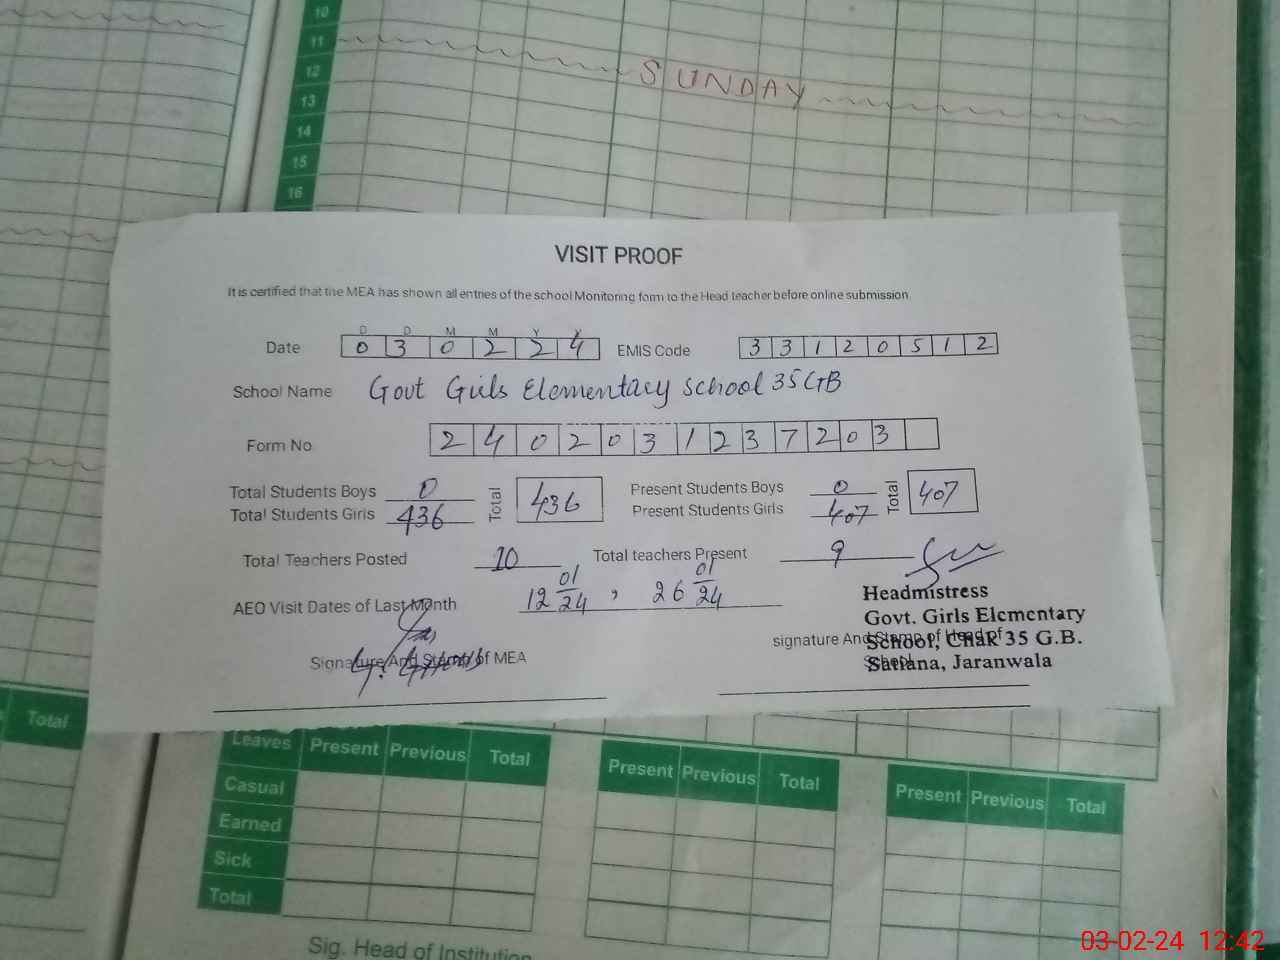 10
11
12
13
14
15
16
SUNDAY
VISIT PROOF
It is certified that the MEA has shown all entries of the school Monitoring form to the Head teacher before online submission
D D M M Y Y
Date 0 3 0 2 2 4 EMIS Code 3 3 1 2 0 5 1 2
School Name Govt Girls Elementary School 35 GB
Form No 2 4 0 2 0 3 1 2 3 7 2 0 3
Total Students Boys 0 Total 436 Present Students Boys 0 Total 407
Total Students Girls 436 Present Students Girls 407
Total Teachers Posted 10 Total teachers Present 9
AEO Visit Dates of Last Month 12 01/24 , 26 01/24
Headmistress
Govt. Girls Elementary
School, Chak 35 G.B.
Satiana, Jaranwala
signature And Stamp of Head of
School
Signature And Stamp of MEA
Total
Leaves Present Previous Total Present Previous Total Present Previous Total
Casual
Earned
Sick
Total
Sig. Head of Institution
03-02-24 12:42